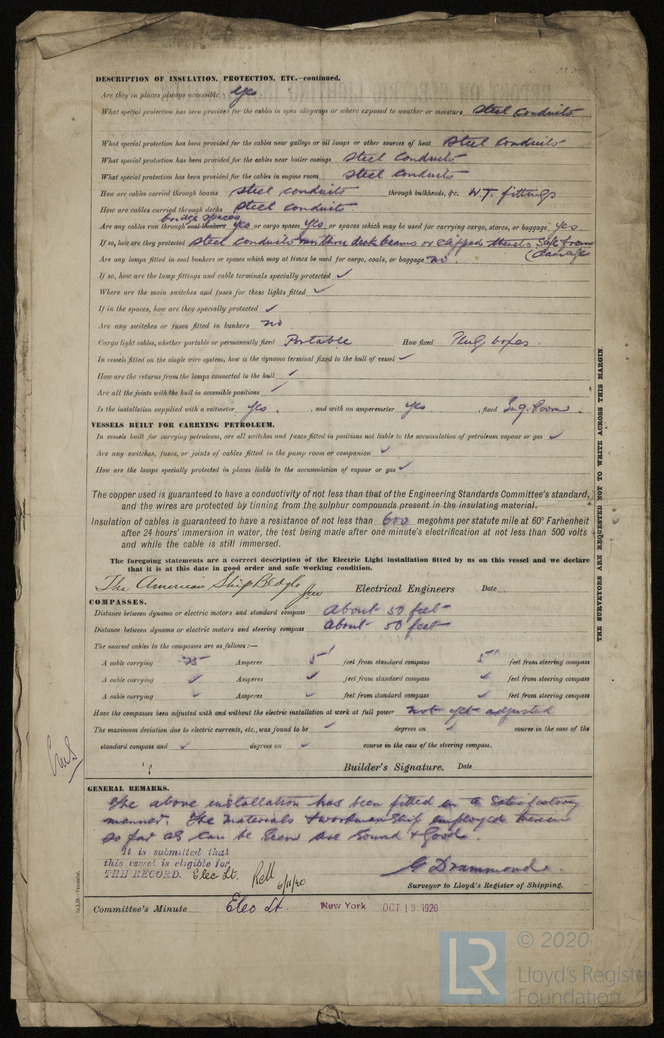 DESCRIPTION OF INSULATION, PROTECTION, ETC.—continued.
Are they in places always accessible Yes
What special protection has been provided for the cables in open alleyways or where exposed to weather or moisture Steel conduits
What special protection has been provided for the cables near galleys or oil lamps or other sources of heat Steel conduits
What special protection has been provided for the cables near boiler casings Steel conduits
What special protection has been provided for the cables in engine room Steel conduits
How are cables carried through beams Steel conduits through bulkheads, &c. W.T. fittings
How are cables carried through decks Steel conduits.
bridge spaces
Are any cables run through coal bunkers Yes or cargo spaces Yes or spaces which may be used for carrying cargo, stores, or baggage Yes
If so, how are they protected Steel conduits run thru deck beams or clipped thereto safe from
damage
Are any lamps fitted in coal bunkers or spaces which may at times be used for cargo, coals, or baggage no.
If so, how are the lamp fittings and cable terminals specially protected ✓
Where are the main switches and fuses for these lights fitted ✓
If in the spaces, how are they specially protected ✓
Are any switches or fuses fitted in bunkers no.
Cargo light cables, whether portable or permanently fixed Portable How fixed Plug boxes.
In vessels fitted on the single wire system, how is the dynamo terminal fixed to the hull of vessel ✓
How are the returns from the lamps connected to the hull ✓
Are all the joints with the hull in accessible positions ✓
Is the installation supplied with a voltmeter Yes. , and with an amperemeter Yes , fixed Eng. Room.
VESSELS BUILT FOR CARRYING PETROLEUM.
In vessels built for carrying petroleum, are all switches and fuses fitted in positions not liable to the accumulation of petroleum vapour or gas ✓
Are any switches, fuses, or joints of cables fitted in the pump room or companion ✓
How are the lamps specially protected in places liable to the accumulation of vapour or gas ✓
The copper used is guaranteed to have a conductivity of not less than that of the Engineering Standards Committee's standard,
and the wires are protected by tinning from the sulphur compounds present in the insulating material.
Insulation of cables is guaranteed to have a resistance of not less than 600 megohms per statute mile at 60° Farhenheit
after 24 hours' immersion in water, the test being made after one minute's electrification at not less than 500 volts
and while the cable is still immersed.
The foregoing statements are a correct description of the Electric Light installation fitted by us on this vessel and we declare
that it is at this date in good order and safe working condition.
The American Ship Bldg Co Electrical Engineers Date
COMPASSES.
Distance between dynamo or electric motors and standard compass About 50 feet
Distance between dynamo or electric motors and steering compass About 50 feet
The nearest cables to the compasses are as follows:—
A cable carrying .25 Amperes 5' feet from standard compass 5' feet from steering compass
A cable carrying ✓ Amperes ✓ feet from standard compass ✓ feet from steering compass
A cable carrying ✓ Amperes ✓ feet from standard compass ✓ feet from steering compass
Have the compasses been adjusted with and without the electric installation at work at full power not yet adjusted
The maximum deviation due to electric currents, etc., was found to be ✓ degrees on ✓ course in the case of the
standard compass and ✓ degrees on ✓ course in the case of the steering compass.
Builder's Signature. Date
GENERAL REMARKS.
The above installation has been fitted in a satisfactory
manner. The materials & workmanship employed therein
so far as can be seen are sound & good.
It is submitted that
this vessel is eligible for
THE RECORD. Elec Lt. 6/11/20
G Drummond.
Surveyor to Lloyd's Register of Shipping.
Committee's Minute Elec Lt. New York OCT 19 1920
THE SURVEYORS ARE REQUESTED NOT TO WRITE ACROSS THIS MARGIN
© 2020
Lloyd's Register
Foundation